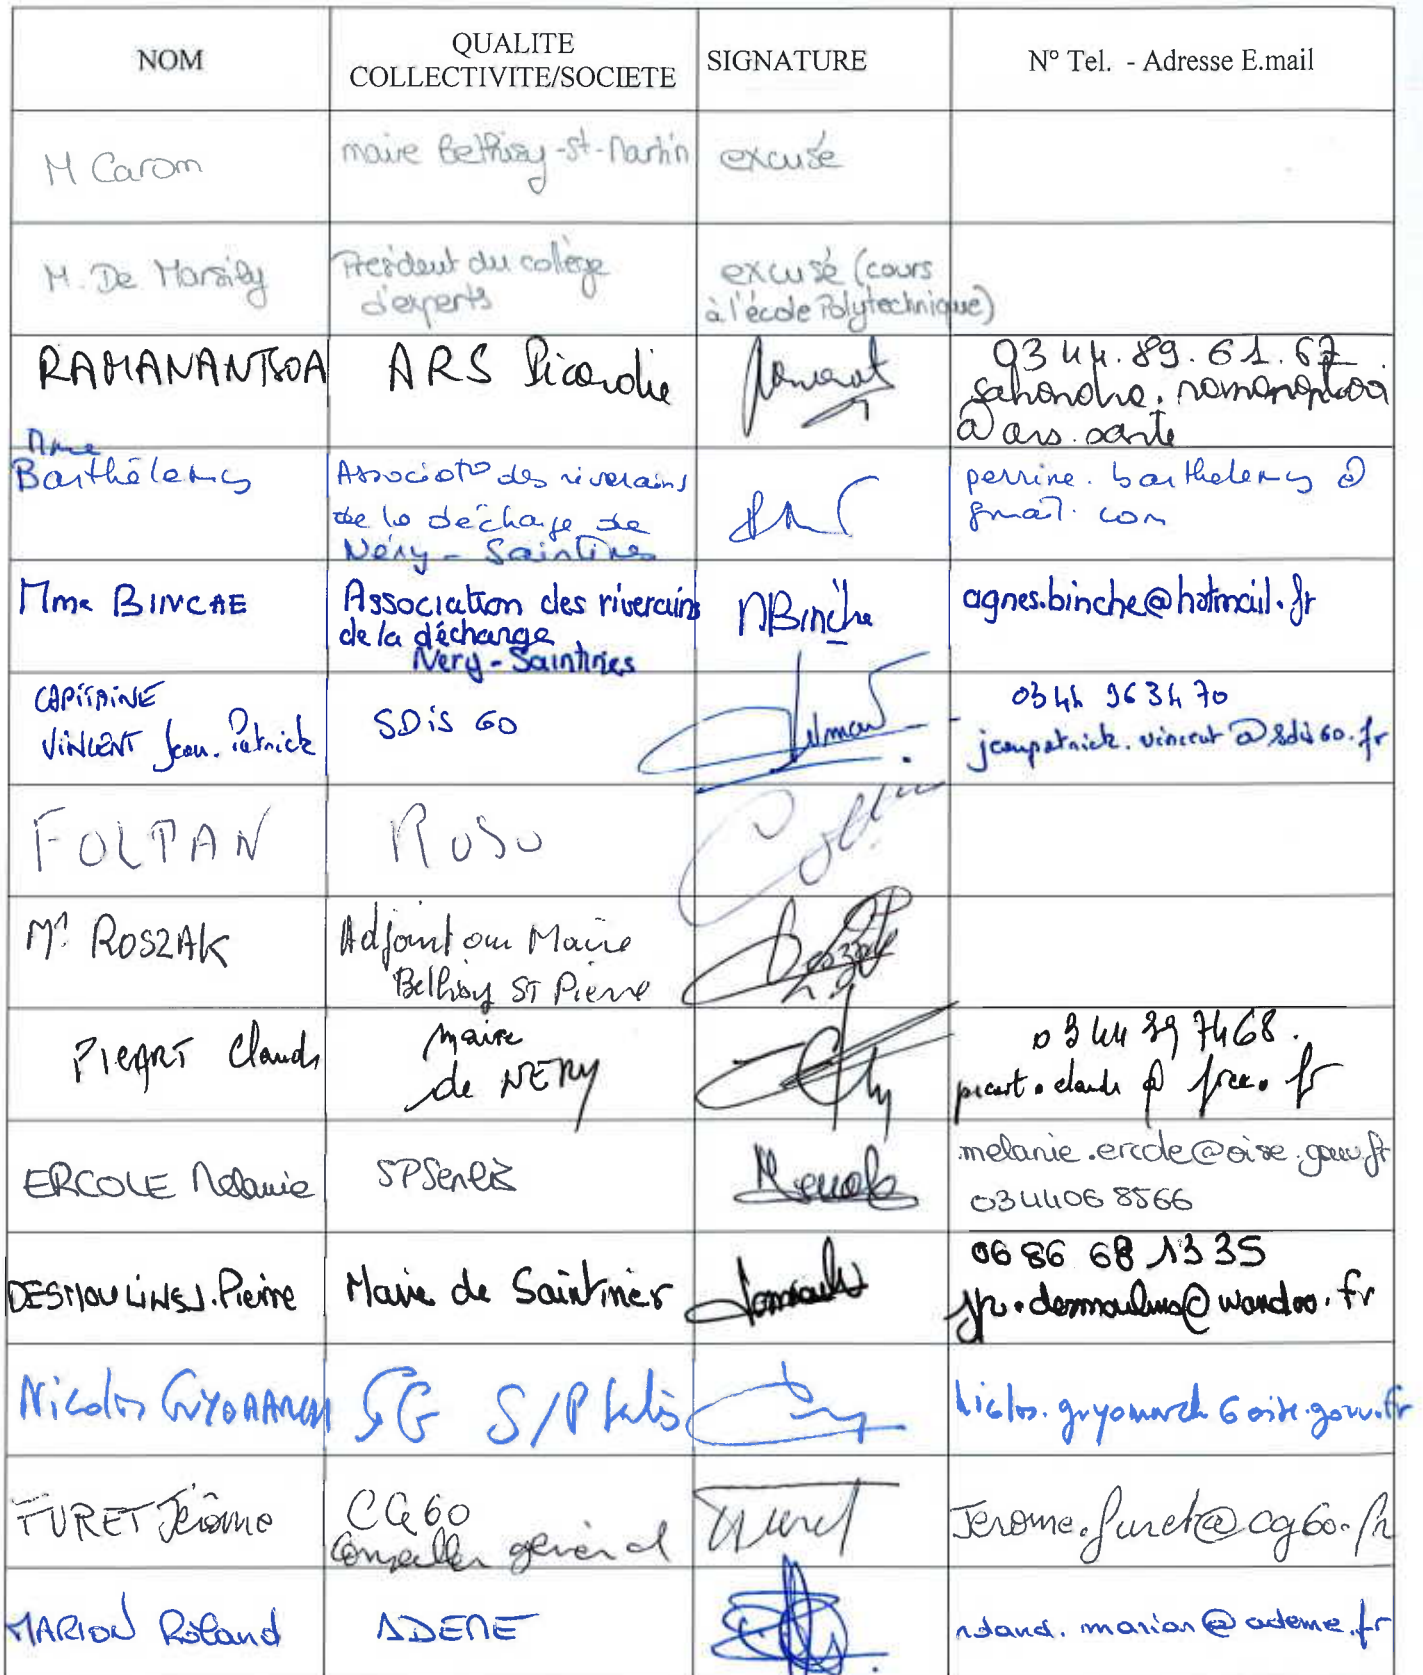 NOM
QUALITE
COLLECTIVITE/SOCIETE
SIGNATURE
N° Tel. - Adresse E.mail
M Carom
maire Bethisy-st-Martin
excusé
M. De Marsily
President du collège
d'experts
excusé (cours
à l'école Polytechnique)
RAMANANTSOA
ARS Picardie
03 44. 89. 61. 67
@ ars. sante
Mme
Barthélemy
Associat° des riverains
de la décharge de
Néry - Saintines
perrine. barthelemy @
gmail. com
Mme BINCHE
Association des riverains
de la déchange
Nery - Saintines
ABinche
agnes.binche@hotmail.fr
CAPITAINE
VINCENT Jean. Patrick
SDIS 60
0344 963470
jeanpatrick. vincent @ sdis60.fr
FOLTPAN
ROSO
Mr ROSZAK
Adjoint au Maire
Bethisy ST Pierre
PICART Claude
maire
de NERY
03 44 39 7468.
picart.claude @ free.fr
ERCOLE Mélanie
SPSenlis
melanie.ercole@oise.gouv.fr
0344068566
DESMOULINS J. Pierre
Maire de Saintines
06 86 68 13 35
jp.desmoulins@wanadoo.fr
Nicolas GUYOMARCH
SG S/P Senlis
nicolas.guyomarch @ oise.gouv.fr
FURET Jérôme
CG60
Conseiller général
Furet
Jerome.furet@cg60.fr
MARION Roland
ADEME
roland.marion@ademe.fr